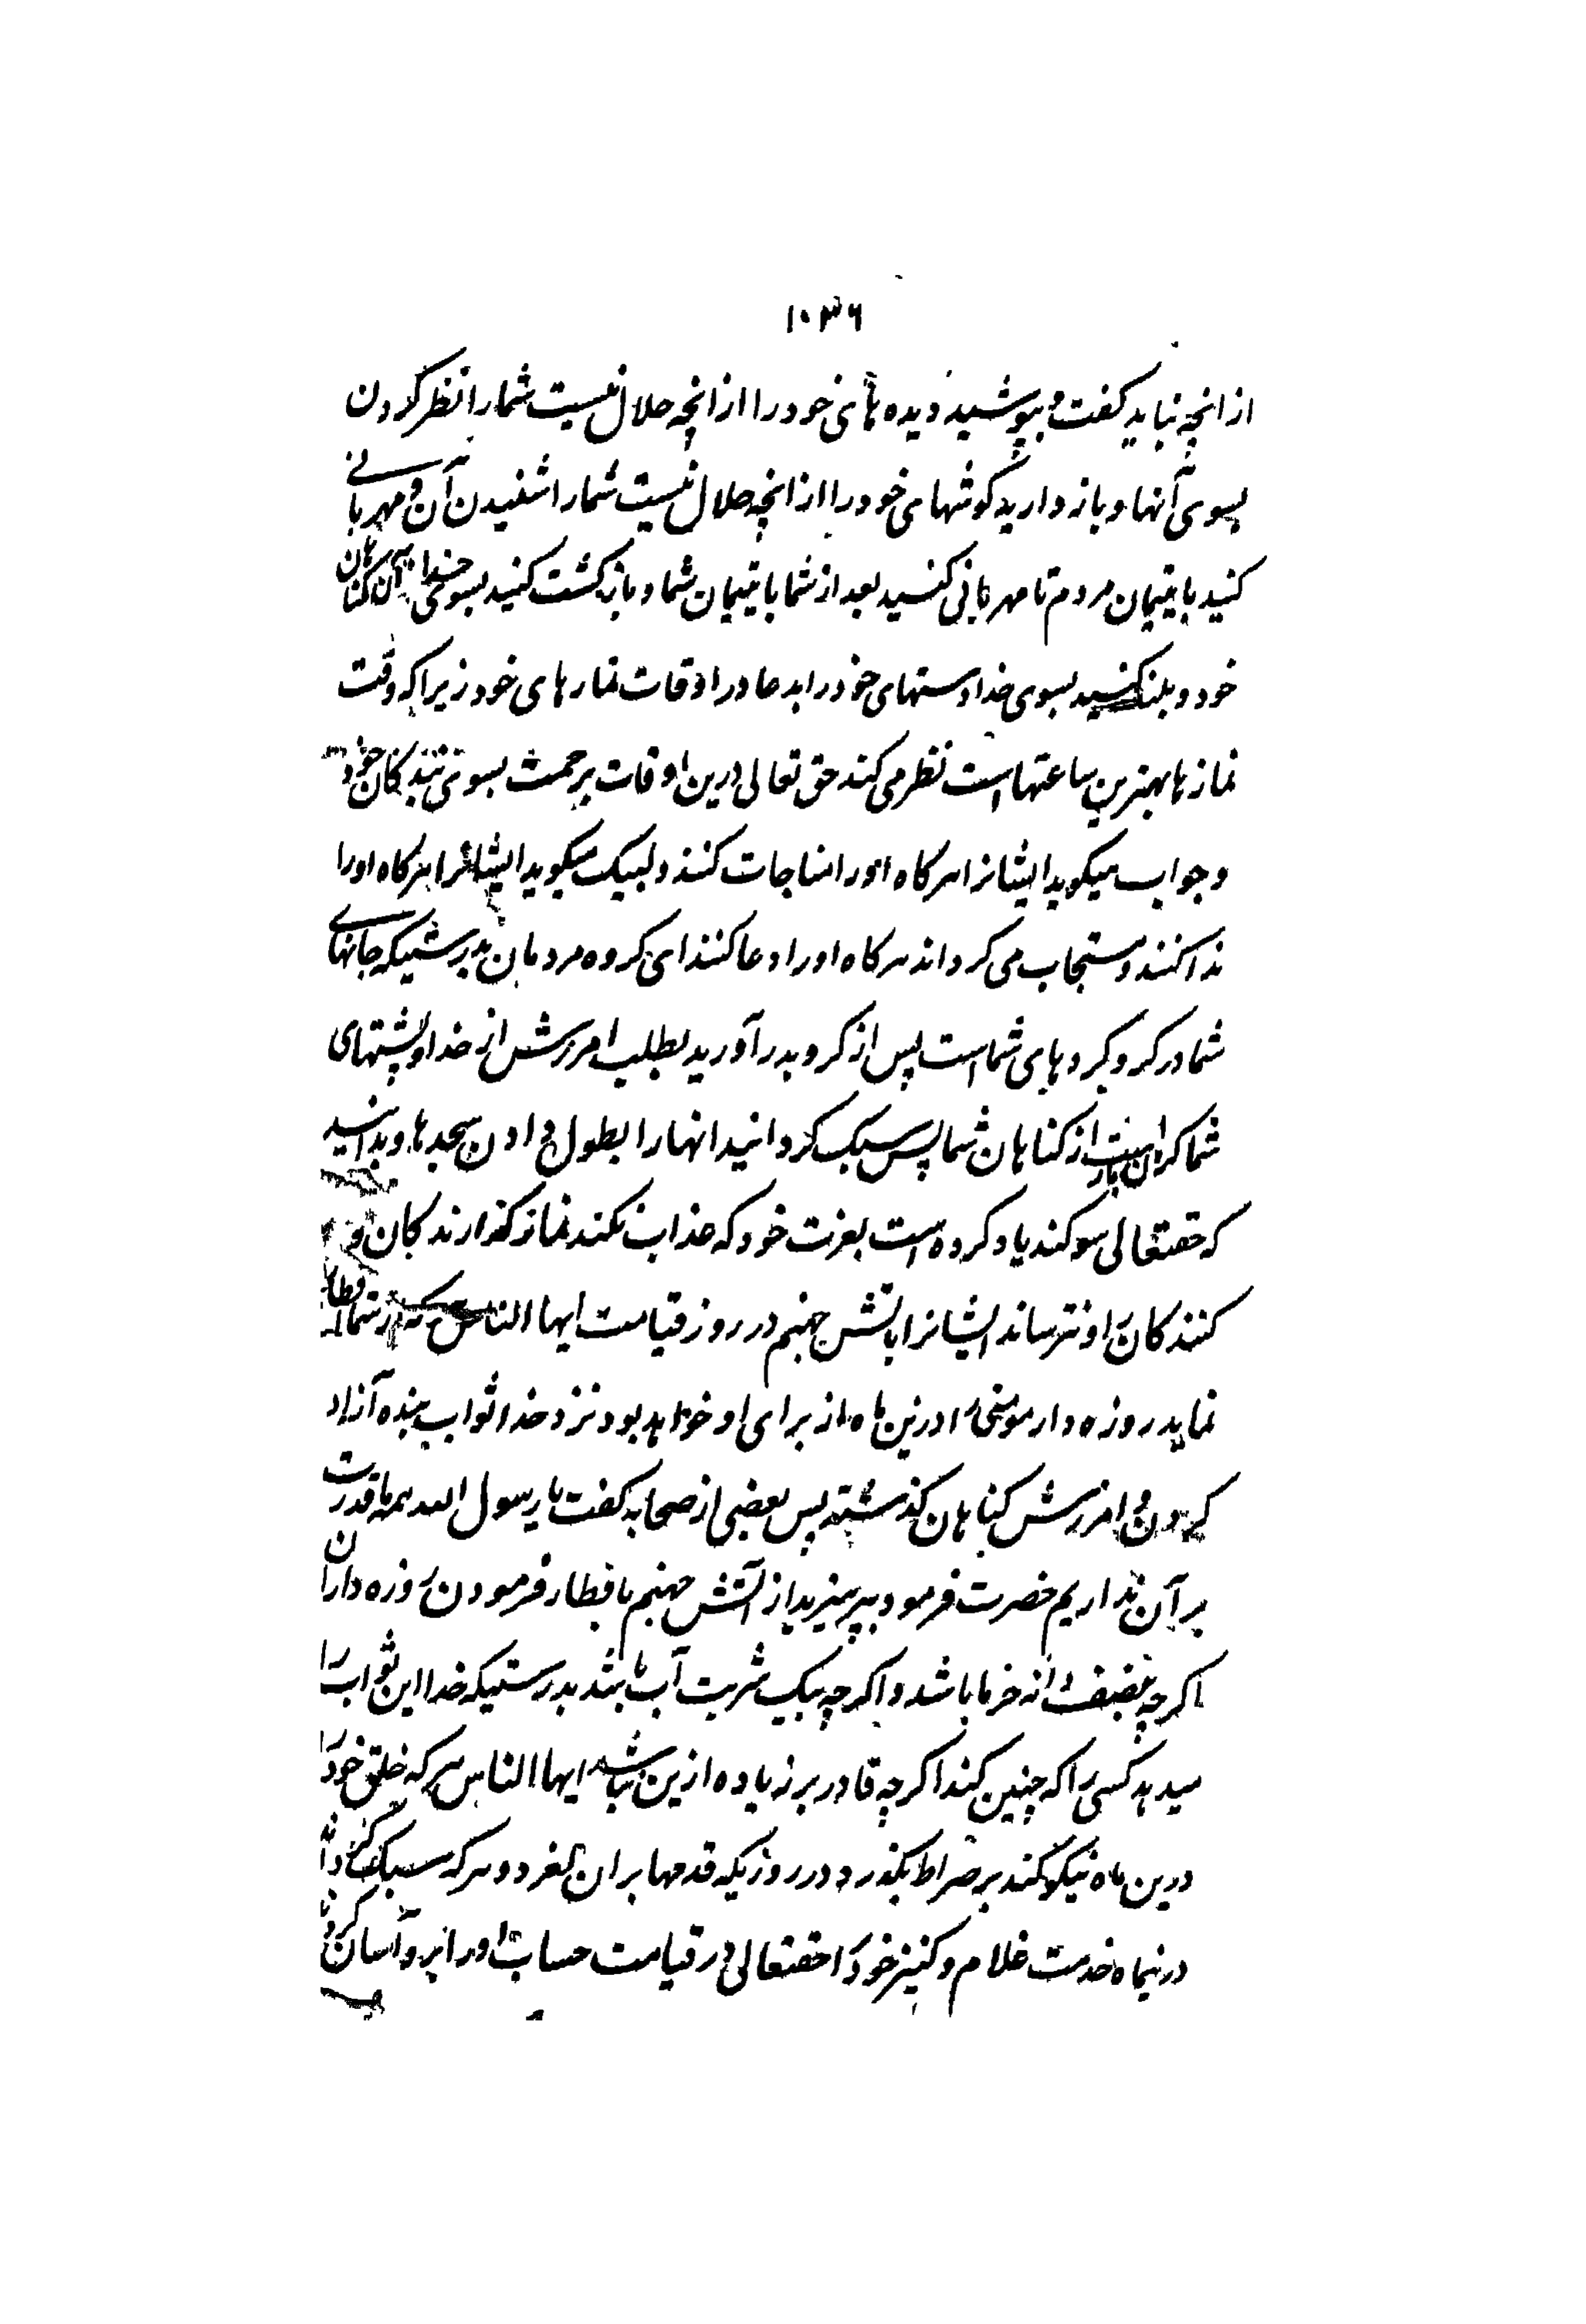 ۱۰۳۶
از انچه نباید کفت و بپوشید دیده های خود را از انچه حلال نیست شما را نظر کردن
بسوی آنها و باز دارید کوشهای خود را از انچه حلال نیست شما را شنیدن آن و مهربانی
کنید با یتیمان مردم تا مهربانی کنند بعد از شما با یتیمان شما و بازکشت کنید بسوی خدا از کناهان
خود و بلند کنید بسوی خدا دستهای خود را بدعا در اوقات نمازهای خود زیرا که وقت
نمازها بهترین ساعتها است نظر می کند حق تعالی درین اوقات برحمت بسوی بندکان خود
و جواب میکوید ایشانرا هرکاه اورا مناجات کنند و لبیک میکوید ایشانرا هرکاه اورا
ندا کنند و مستجاب می کرداند هرکاه اورا دعا کنند ای کروه مردمان بدرستیکه جانهای
شما در کرو کردهای شما است پس از کرو بدر آورید بطلب امرزش از خدا و پشتهای
شما کران بار است از کناهان شما پس سبک کردانید انها را بطول دادن سجدها و بدانید
که حقتعالی سوکند یاد کرده است بعزت خود که عذاب نکند نماز کذارندکان و
کنندکان را و نترساند ایشانرا باتش جهنم در روز قیامت ایها الناس هرکه از شما افطار
نماید روزه دار مومنی را درین ماه از برای او خواهد بود نزد خدا ثواب بنده آزاد
کردن و امرزش کناهان کذشته پس بعضی از صحابه کفت یا رسول الله همه ما قدرت
بر آن نداریم حضرت فرمود بپرهیزید از آتش جهنم بافطار فرمودن روزه داران
اکرچه بنصف دانه خرما باشد و اکرچه بیک شربت آب باشد بدرستیکه خدا این ثواب را
میدهد کسی را که چنین کند اکرچه قادر بر زیاده ازین نباشد ایها الناس هرکه خلق خود را
درین ماه نیکو کند بر صراط بکذرد در روزیکه قدمها بران لغزد و هرکه سبک کرداند
درینماه خدمت غلام و کنیز خود را حقتعالی در قیامت حساب اورا برو آسان کرداند